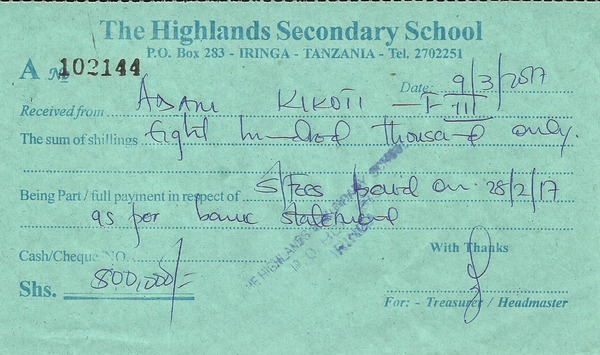 The Highlands Secondary School
P.O. Box 283 - IRINGA - TANZANIA - Tel. 2702251
A No 102144
Date: 9/3/2017
Received from ADAM KIKOTI - F III
The sum of shillings Eight hundred thousand only.
Being Part / full payment in respect of S/Fees paid on 28/2/17
as per bank statement
Cash/Cheque NO.
With Thanks
Shs. 800,000/=
For: - Treasurer / Headmaster